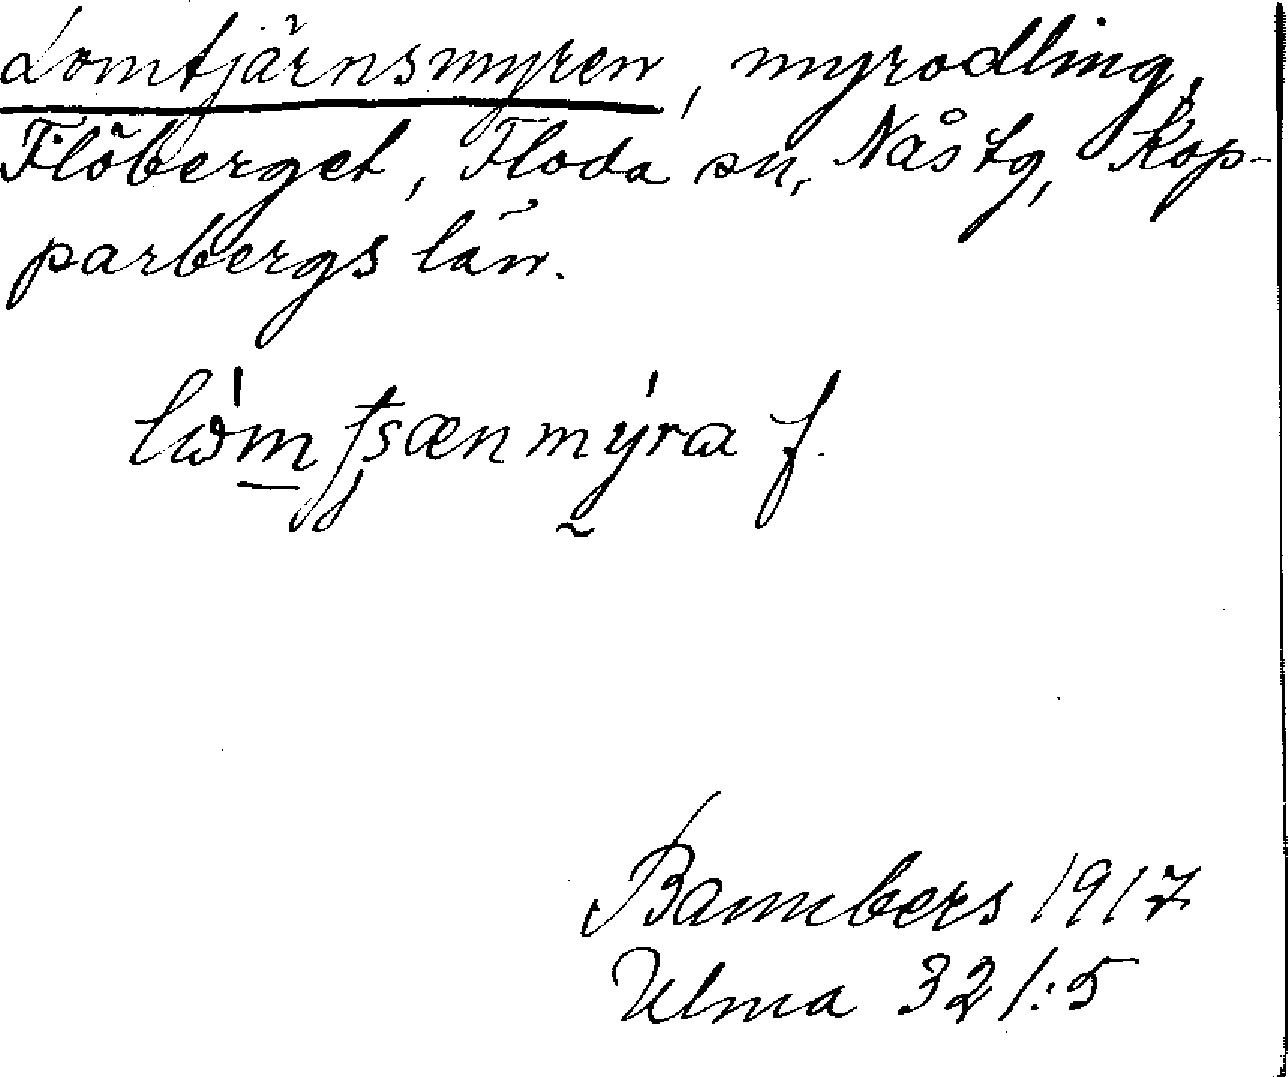 Lomtjärnsmyren, myrodling,
Flöberget, Floda sn, Nås tg, Kop-
parbergs län.
myra f.
Bannbers 1917
Ulma 321:5